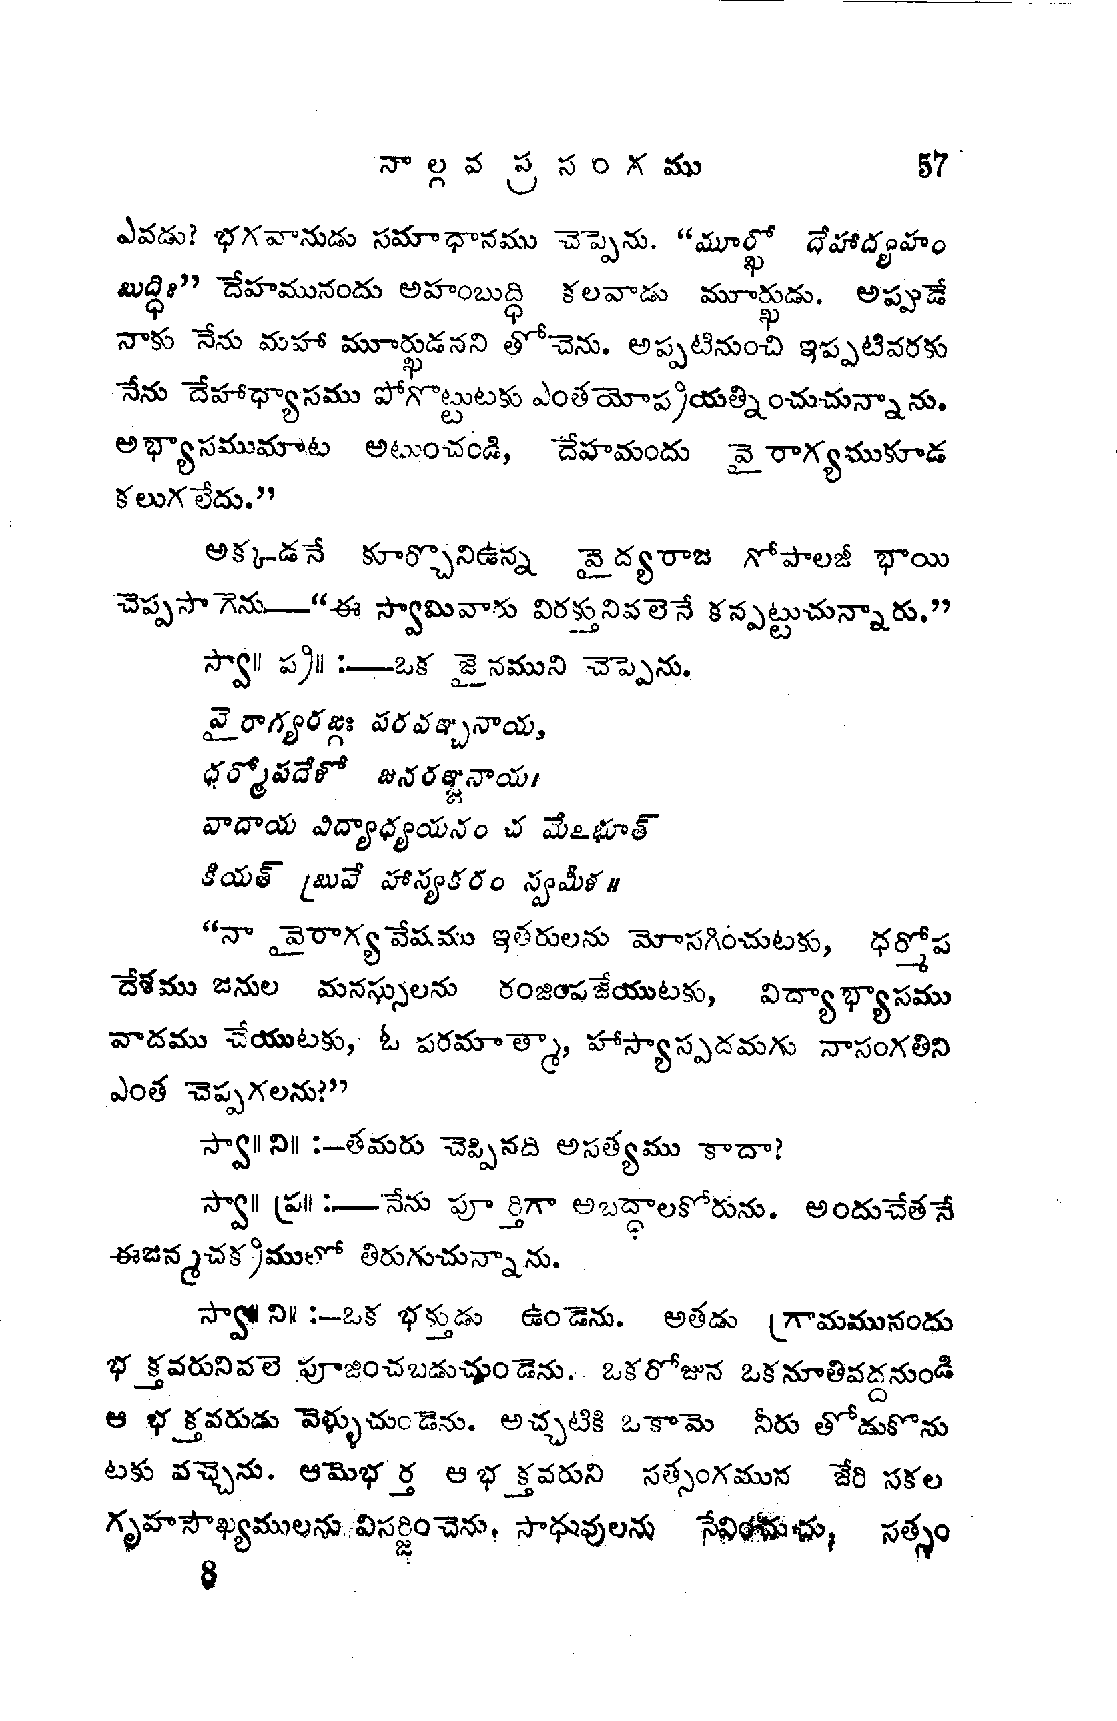 నాల్గవ ప్రసంగము 57
ఎవడు? భగవానుడు సమాధానము చెప్పెను. “మూర్ఖో దేహాద్యహం
బుద్ధిః” దేహమునందు అహంబుద్ధి కలవాడు మూర్ఖుడు. అప్పుడే
నాకు నేను మహా మూర్ఖుడనని తోచెను. అప్పటినుంచి ఇప్పటివరకు
నేను దేహాధ్యాసము పోగొట్టుటకు ఎంతయోప్రయత్నించుచున్నాను.
అభ్యాసముమాట అటుంచండి, దేహమందు వైరాగ్యముకూడ
కలుగలేదు.”
అక్కడనే కూర్చొనిఉన్న వైద్యరాజ గోపాలజీ భాయి
చెప్పసాగెను—“ఈ స్వామివారు విరక్తునివలెనే కన్పట్టుచున్నారు.”
స్వా॥ ప్ర॥ :—ఒక జైనముని చెప్పెను.
వైరాగ్యరఙ్గః పరవఞ్చనాయ,
ధర్మోపదేశో జనరఞ్జనాయ।
వాదాయ విద్యాధ్యయనం చ మేఽభూత్
కియత్ బ్రువే హాస్యకరం స్వమీశ॥
“నా వైరాగ్యవేషము ఇతరులను మోసగించుటకు, ధర్మోప
దేశము జనుల మనస్సులను రంజింపజేయుటకు, విద్యాభ్యాసము
వాదము చేయుటకు, ఓ పరమాత్మా, హాస్యాస్పదమగు నాసంగతిని
ఎంత చెప్పగలను?”
స్వా॥ ని॥ :—తమరు చెప్పినది అసత్యము కాదా?
స్వా॥ ప్ర॥ :—నేను పూర్తిగా అబద్ధాలకోరును. అందుచేతనే
ఈజన్మచక్రములో తిరుగుచున్నాను.
స్వా॥ ని॥ :—ఒక భక్తుడు ఉండెను. అతడు గ్రామమునందు
భక్తవరునివలె పూజించబడుచుండెను. ఒకరోజున ఒకనూతివద్దనుండి
ఆ భక్తవరుడు వెళ్ళుచుండెను. అచ్చటికి ఒకామె నీరు తోడుకొను
టకు వచ్చెను. ఆమెభర్త ఆ భక్తవరుని సత్సంగమున జేరి సకల
గృహసౌఖ్యములను విసర్జించెను, సాధువులను సేవించుచు, సత్సం
8